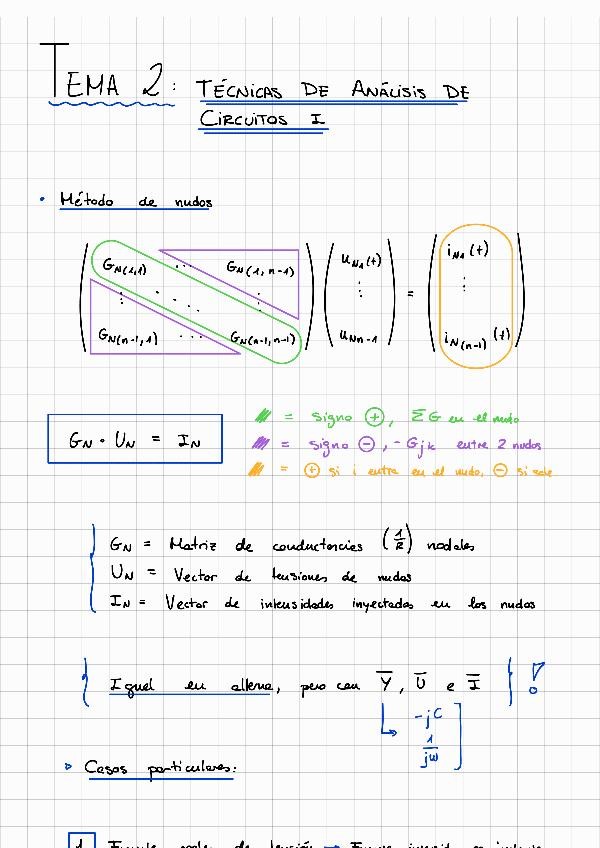 TEMA 2: TÉCNICAS DE ANÁLISIS DE
CIRCUITOS I
• Método de nudos
G_N(1,1) ... G_N(1,n-1) u_N1(t) i_N1(t)
⋮ ⋱ ⋮ ⋮ = ⋮
G_N(n-1,1) ... G_N(n-1,n-1) u_Nn-1 i_N(n-1)(t)
G_N · U_N = I_N
= signo ⊕, ΣG en el nudo
= signo ⊖, -Gjk entre 2 nudos
= ⊕ si i entra en el nudo, ⊖ si sale
G_N = Matriz de conductancias (1/R) nodales
U_N = Vector de tensiones de nudos
I_N = Vector de intensidades inyectadas en los nudos
Igual en alterna, pero con Y̅, U̅ e I̅ !
-jC
1/jω
▹ Casos particulares:
1